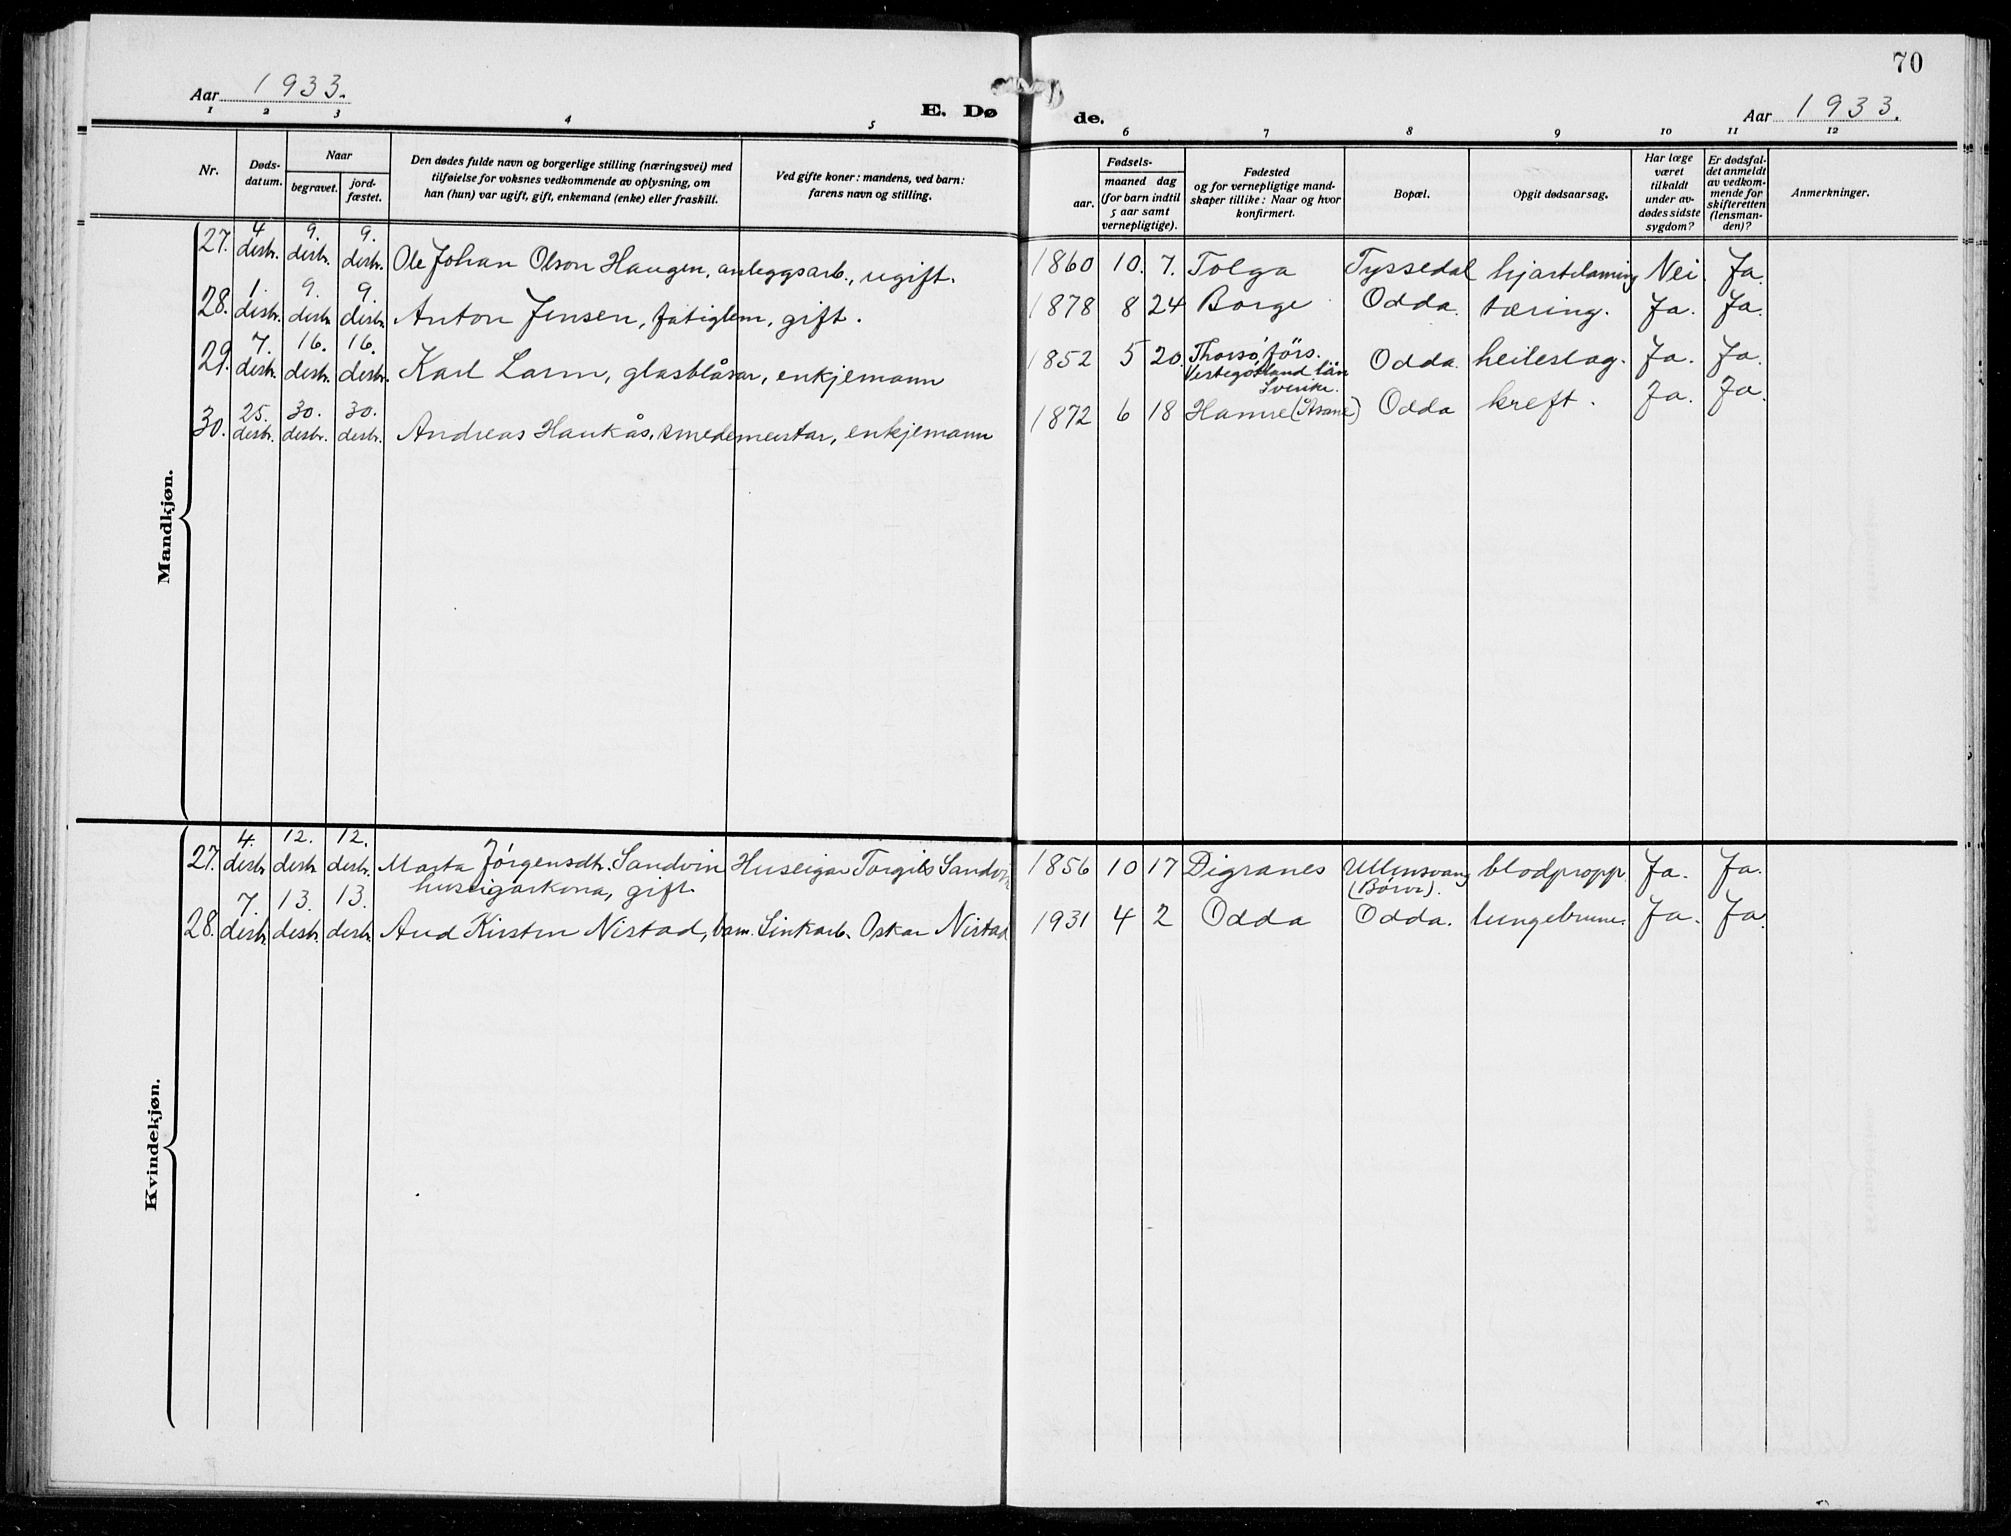 70
Aar 1933.
E. Dø
de.
Aar 1933.
1 2 3 4 5 6 7 8 9 10 11 12
Nr.
Døds-
datum.
Naar
begravet.
jord-
fæstet.
Den dødes fulde navn og borgerlige stilling (næringsvei) med
tilføielse for voksnes vedkommende av oplysning, om
han (hun) var ugift, gift, enkemand (enke) eller fraskilt.
Ved gifte koner: mandens, ved barn:
farens navn og stilling.
Fødsels-
aar.
maaned dag
(for barn indtil
5 aar samt
vernepligtige).
Fødested
og for vernepligtige mand-
skaper tillike: Naar og hvor
konfirmert.
Bopæl.
Opgit dødsaarsag.
Har læge
været
tilkaldt
under av-
dødes sidste
sygdom?
Er dødsfal-
det anmeldt
av vedkom-
mende for
skifteretten
(lensman-
den)?
Anmerkninger.
Mandkjøn.
27. 4 desbr. 9. desbr. 9. desbr. Ole Johan Olson Haugen, anleggsarb., ugift. 1860 10. 7. Tolga Tyssedal hjartelaming Nei Ja.
28. 1. desbr. 9. desbr. 9. desbr. Anton Jensen, fatiglem, gift. 1878 8 24 Borge Odda. tæring. Ja. Ja.
29. 7. desbr. 16. desbr. 16. desbr. Karl Larm, glasblåsar, enkjemann 1852 5 20. Thorsø förs. Odda. heileslag. Ja. Ja.
Vestegötland län
Sverike.
30. 25. desbr. 30. desbr. 30. desbr. Andreas Haukås, smedemeistar, enkjemann 1872 6 18 Hamre (Åsane) Odda kreft. Ja. Ja.
Kvindekjøn.
27. 4. desbr 12. desbr 12. desbr. Marta Jørgensdtr. Sandvin Huseigar Torgils Sandvin 1856 10 17 Digranes Ullensvang blodpropp Ja. Ja.
huseigarkona, gift. (Børve).
28. 7. desbr. 13. desbr. 13. desbr. Aud Kirsten Nistad, barn. Sinkarb. Oskar Nistad 1931 4 2 Odda Odda. lungebrune. Ja. Ja.